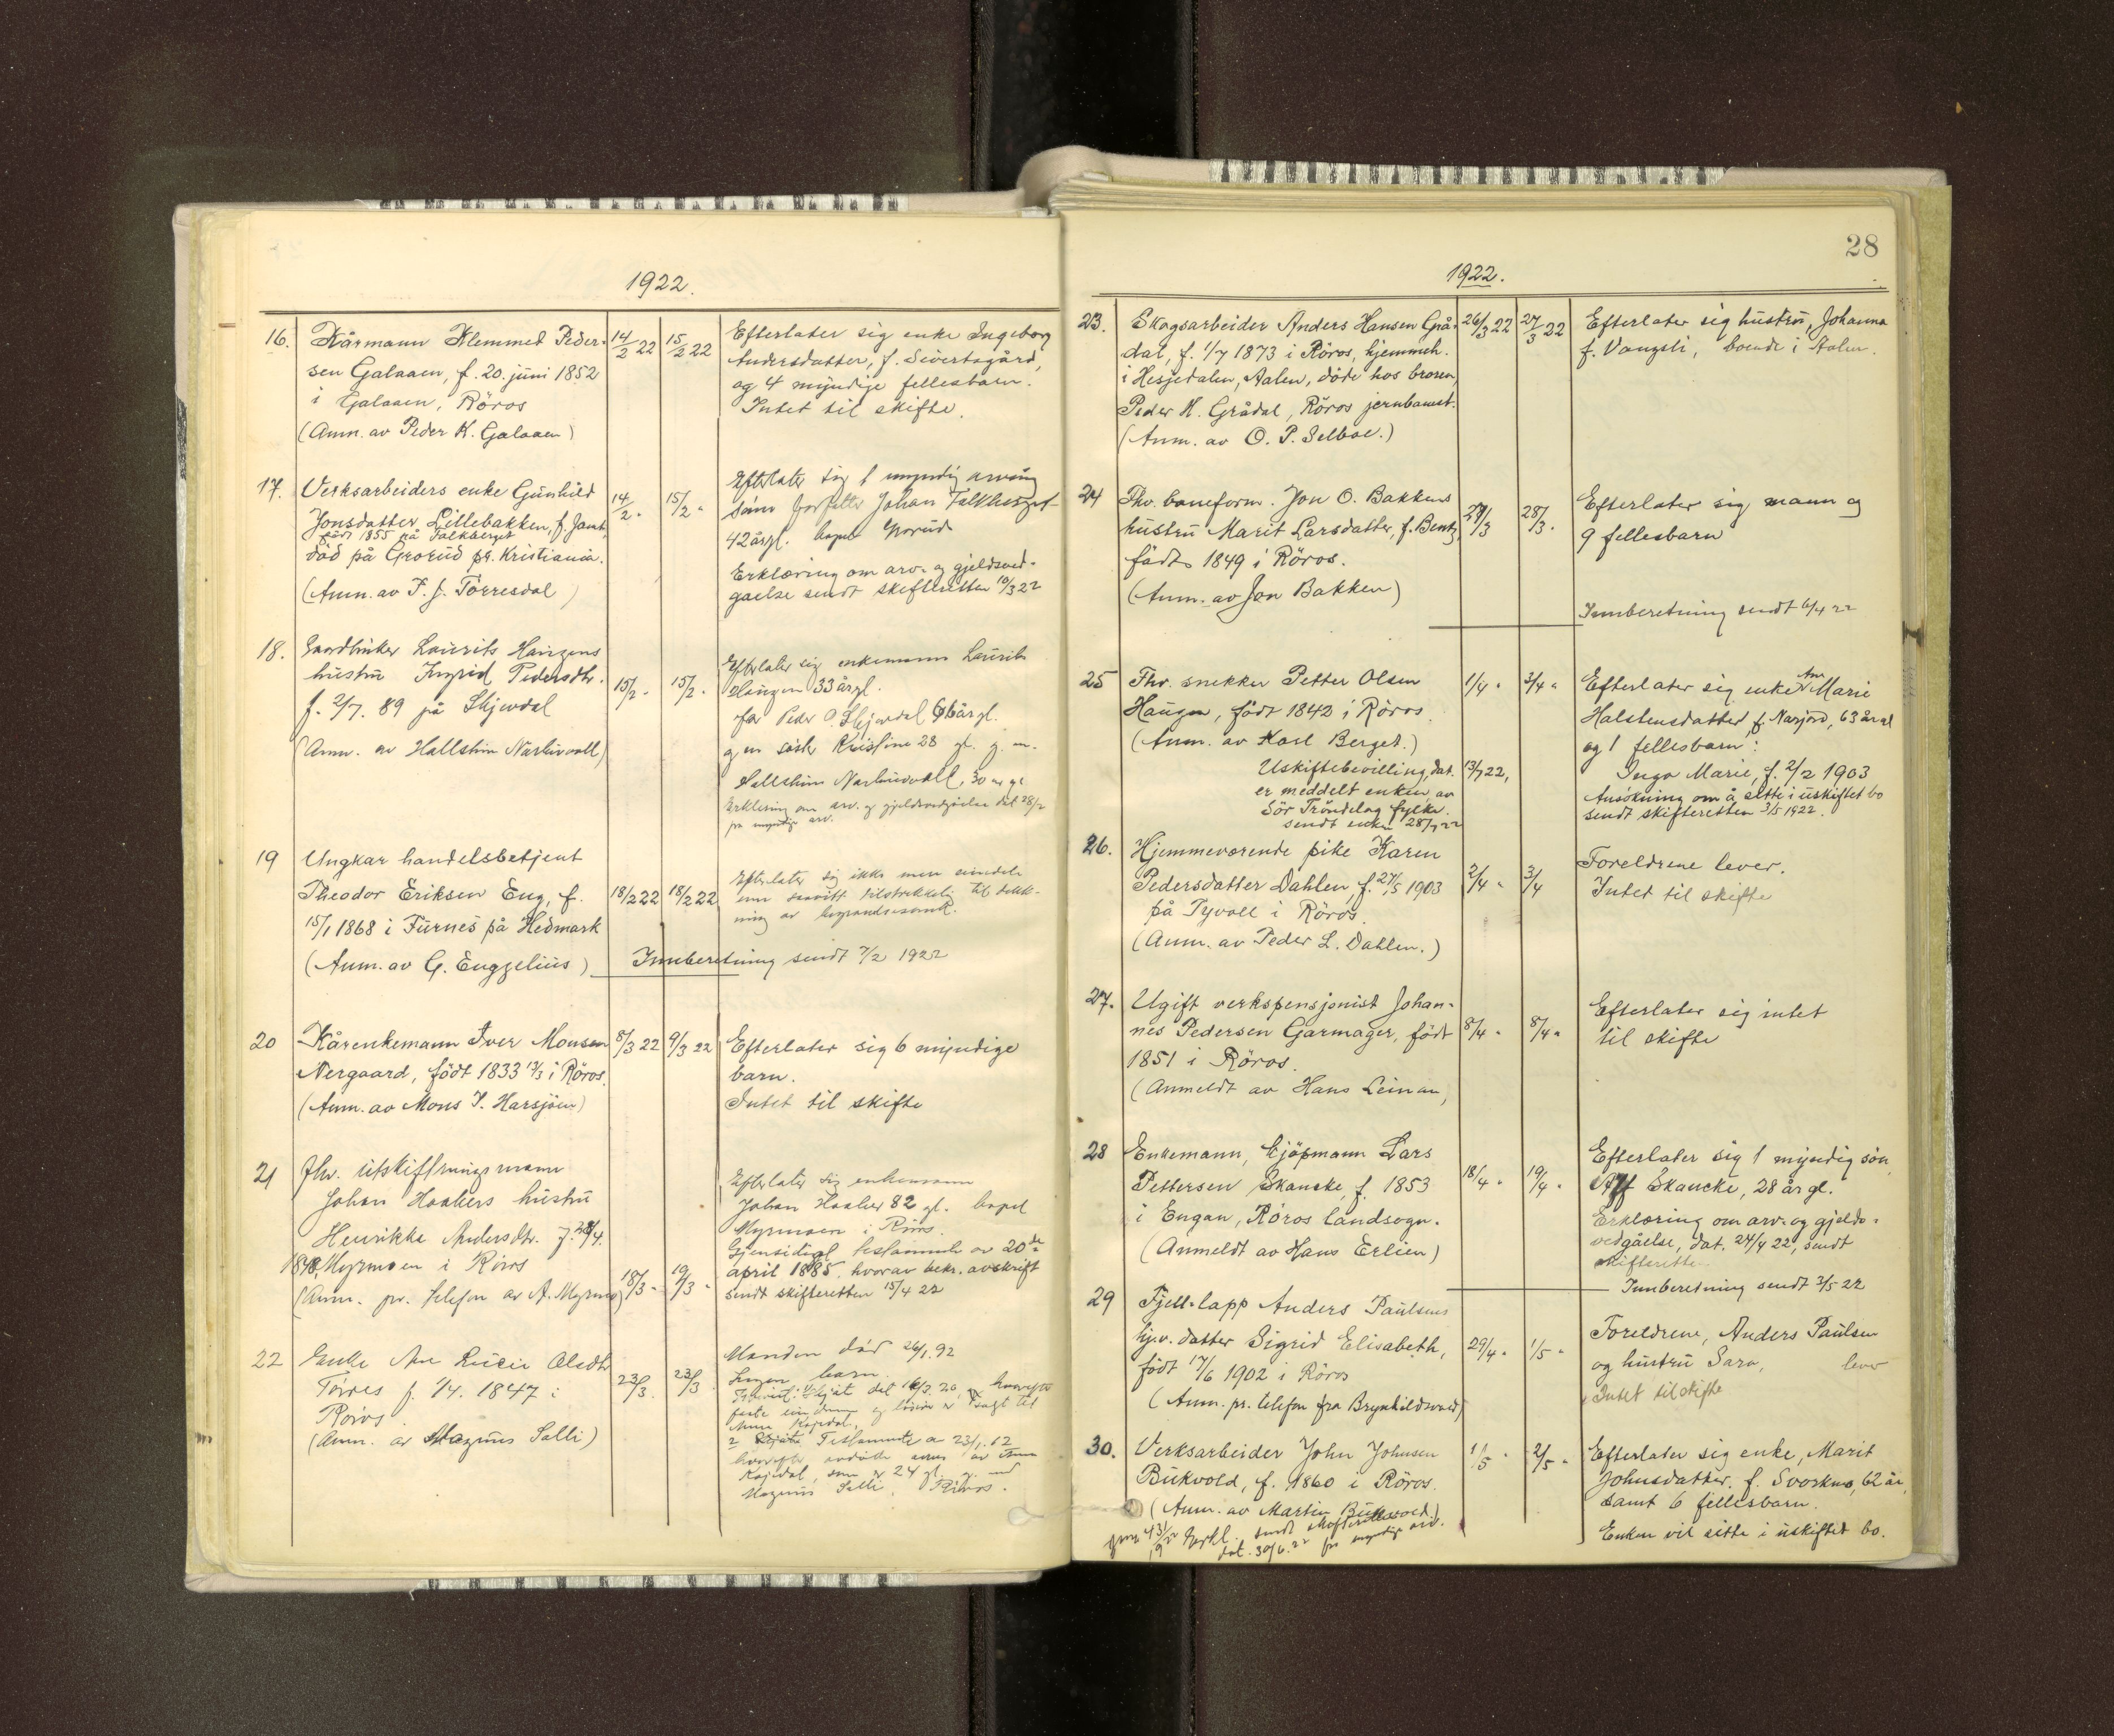 1922.
16. Kårmann Klemmet Peder- 14/2 22 15/2 22 Efterlater sig enke Ingeborg
sen Galaaen, f. 20. juni 1852 Andersdatter, f. Sivertsgård,
i Galaaen, Röros og 4 myndige fellesbarn.
(Anm. av Peder K. Galaaen) Intet til skifte.
17. Verksarbeiders enke Gunhild 14/2 " 15/2 " Efterlater sig 1 myndig arving
Jonsdatter Lillebakken, f. Jamt, sönn forfatter Johan Falkberget
født 1855 på Falkberget 42 årgl. bopel Grorud
död på Grorud pr. Kristiania. Erklæring om arv- og gjeldsved-
(Anm. av J. J. Törresdal) gaelse sendt skifteretten 10/3 22
18. Gaardbruker Laurits Haugens Efterlater sig enkemann Laurits
hustru Ingrid Pedersdtr. 15/2 - 15/2 - Haugen 33 årgl.
f. 2/7. 89 på Skjevdal far Peder O. Skjevdal 66 årgl.
(Anm. av Hallstein Narbuvoll) g en søster Kristine 28 gl. g. m.
Hallstein Narbuvoll, 30 år gl.
Erklæring om arv. og gjeldsvedgåelse dat 28/2
fra myndige arv.
19 Ungkar handelsbetjent Efterlater sig ikke mere eiendele
Theodor Eriksen Eng, f. 18/2 22 18/2 22 enn tilstrekkelig til dekk-
15/1 1868 i Furnes på Hedmark ning av
(Anm. av G. Engzelius) Innberetning sendt 7/2 1922
20 Kårenkemann Iver Monsen 8/3 22 9/3 22 Efterlater sig 6 myndige
Nergaard, födt 1833 13/3 i Röros. barn.
(Anm. av Mons I. Harsjöen) Intet til skifte
21 Fhv. utskiftningsmann Efterlater sig enkemann
Johan Haakers hustru Johan Haaker 82 gl. bopel
Henrikke Andersdtr. f. 28/4. Myrmoen i Röros.
1848, Myrmoen i Röros Gjensidigt testamente av 20de
18/3 - 19/3 - april 1885, hvorav bekr. avskrift
(Anm. pr. telefon av A. Myrmo) sendt skifteretten 15/4 22
22 Enke Ane Lucie Olsdtr Manden död 26/1. 92
Törres f. 1/4. 1847 i 23/3. 23/3 Ingen barn.
Röros
(Anm. av Magnus Salli)
2 Testamente av 23/1. 12
som er 24 gl. g. med
Magnus Salli, Röros.
28
1922.
23. Skogsarbeider Anders Hansen Grå- 26/3 22 27/3 22 Efterlater sig hustru, Johanna
dal, f. 1/7 1873 i Röros, hjemmeh. f. Vongsli, boende i Aalen.
i Hesjedalen, Aalen, döde hos broren,
Peder H. Grådal, Röros jernbanest.
(Anm. av O. P. Selboe.)
24 Fhv. baneform. Jon O. Bakkens 27/3 28/3. Efterlater sig mann og
hustru Marit Larsdatter, f. Bentz, 9 fellesbarn
födt 1849 i Röros.
(Anm. av Jon Bakken)
Innberetning sendt 6/4 22
25 Fhv. snekker Petter Olsen 1/4 " 3/4 " Efterlater sig enke Ane Marie
Haugen, födt 1842 i Röros. Halstensdatter, f. Narjord, 63 år gl
(Anm. av Karl Berget.) og 1 fellesbarn:
Uskiftebevilling, dat. 13/7 22, Inga Marie, f. 2/2 1903
er meddelt enken av Ansökning om å sitte i uskiftet bo
Sör Tröndelag fylke. sendt skifteretten 3/5 1922.
sendt enken 28/7 22
26. Hjemmeværende pike Karen Foreldrene lever.
Pedersdatter Dahlen, f. 27/5 1903 2/4 " 3/4 Intet til skifte
på Tyvoll i Röros.
(Anm. av Peder L. Dahlen.)
27. Ugift verkspensjonist Johan- Efterlater sig intet
nes Pedersen Garmager, födt 8/4 " 8/4 " til skifte
1851 i Röros.
(Anmeldt av Hans Leinan)
28 Enkemann, kjöpmann Lars Efterlater sig 1 myndig sön
Pettersen Skancke, f. 1853 18/4 " 19/4 " Alf Skancke, 28 år gl.
i Engan, Röros landsogn. Erklæring om arv- og gjelds-
(Anmeldt av Hans Erlien) vedgåelse, dat. 24/4 22, sendt
skifteretten
Innberetning sendt 3/5 22
29 Fjell-lapp Anders Paulsens Foreldrene, Anders Paulsen
hjv. datter Sigrid Elisabeth, 29/4 " 1/5 " og hustru Sara, lever
födt 17/6 1902 i Röros Intet til skifte
(Anm. pr. telefon fra Brynhildsvold)
30. Verksarbeider John Johnsen 1/5 " 2/5 " Efterlater sig enke, Marit
Bukvold, f. 1860 i Röros. Johnsdatter, f. Svorkmo, 62 år,
(Anm. av Martin Bukvold) samt 6 fellesbarn.
sendt skifteretten Enken vil sitte i uskiftet bo.
dat. 30/6. 22 fra myndige arv.